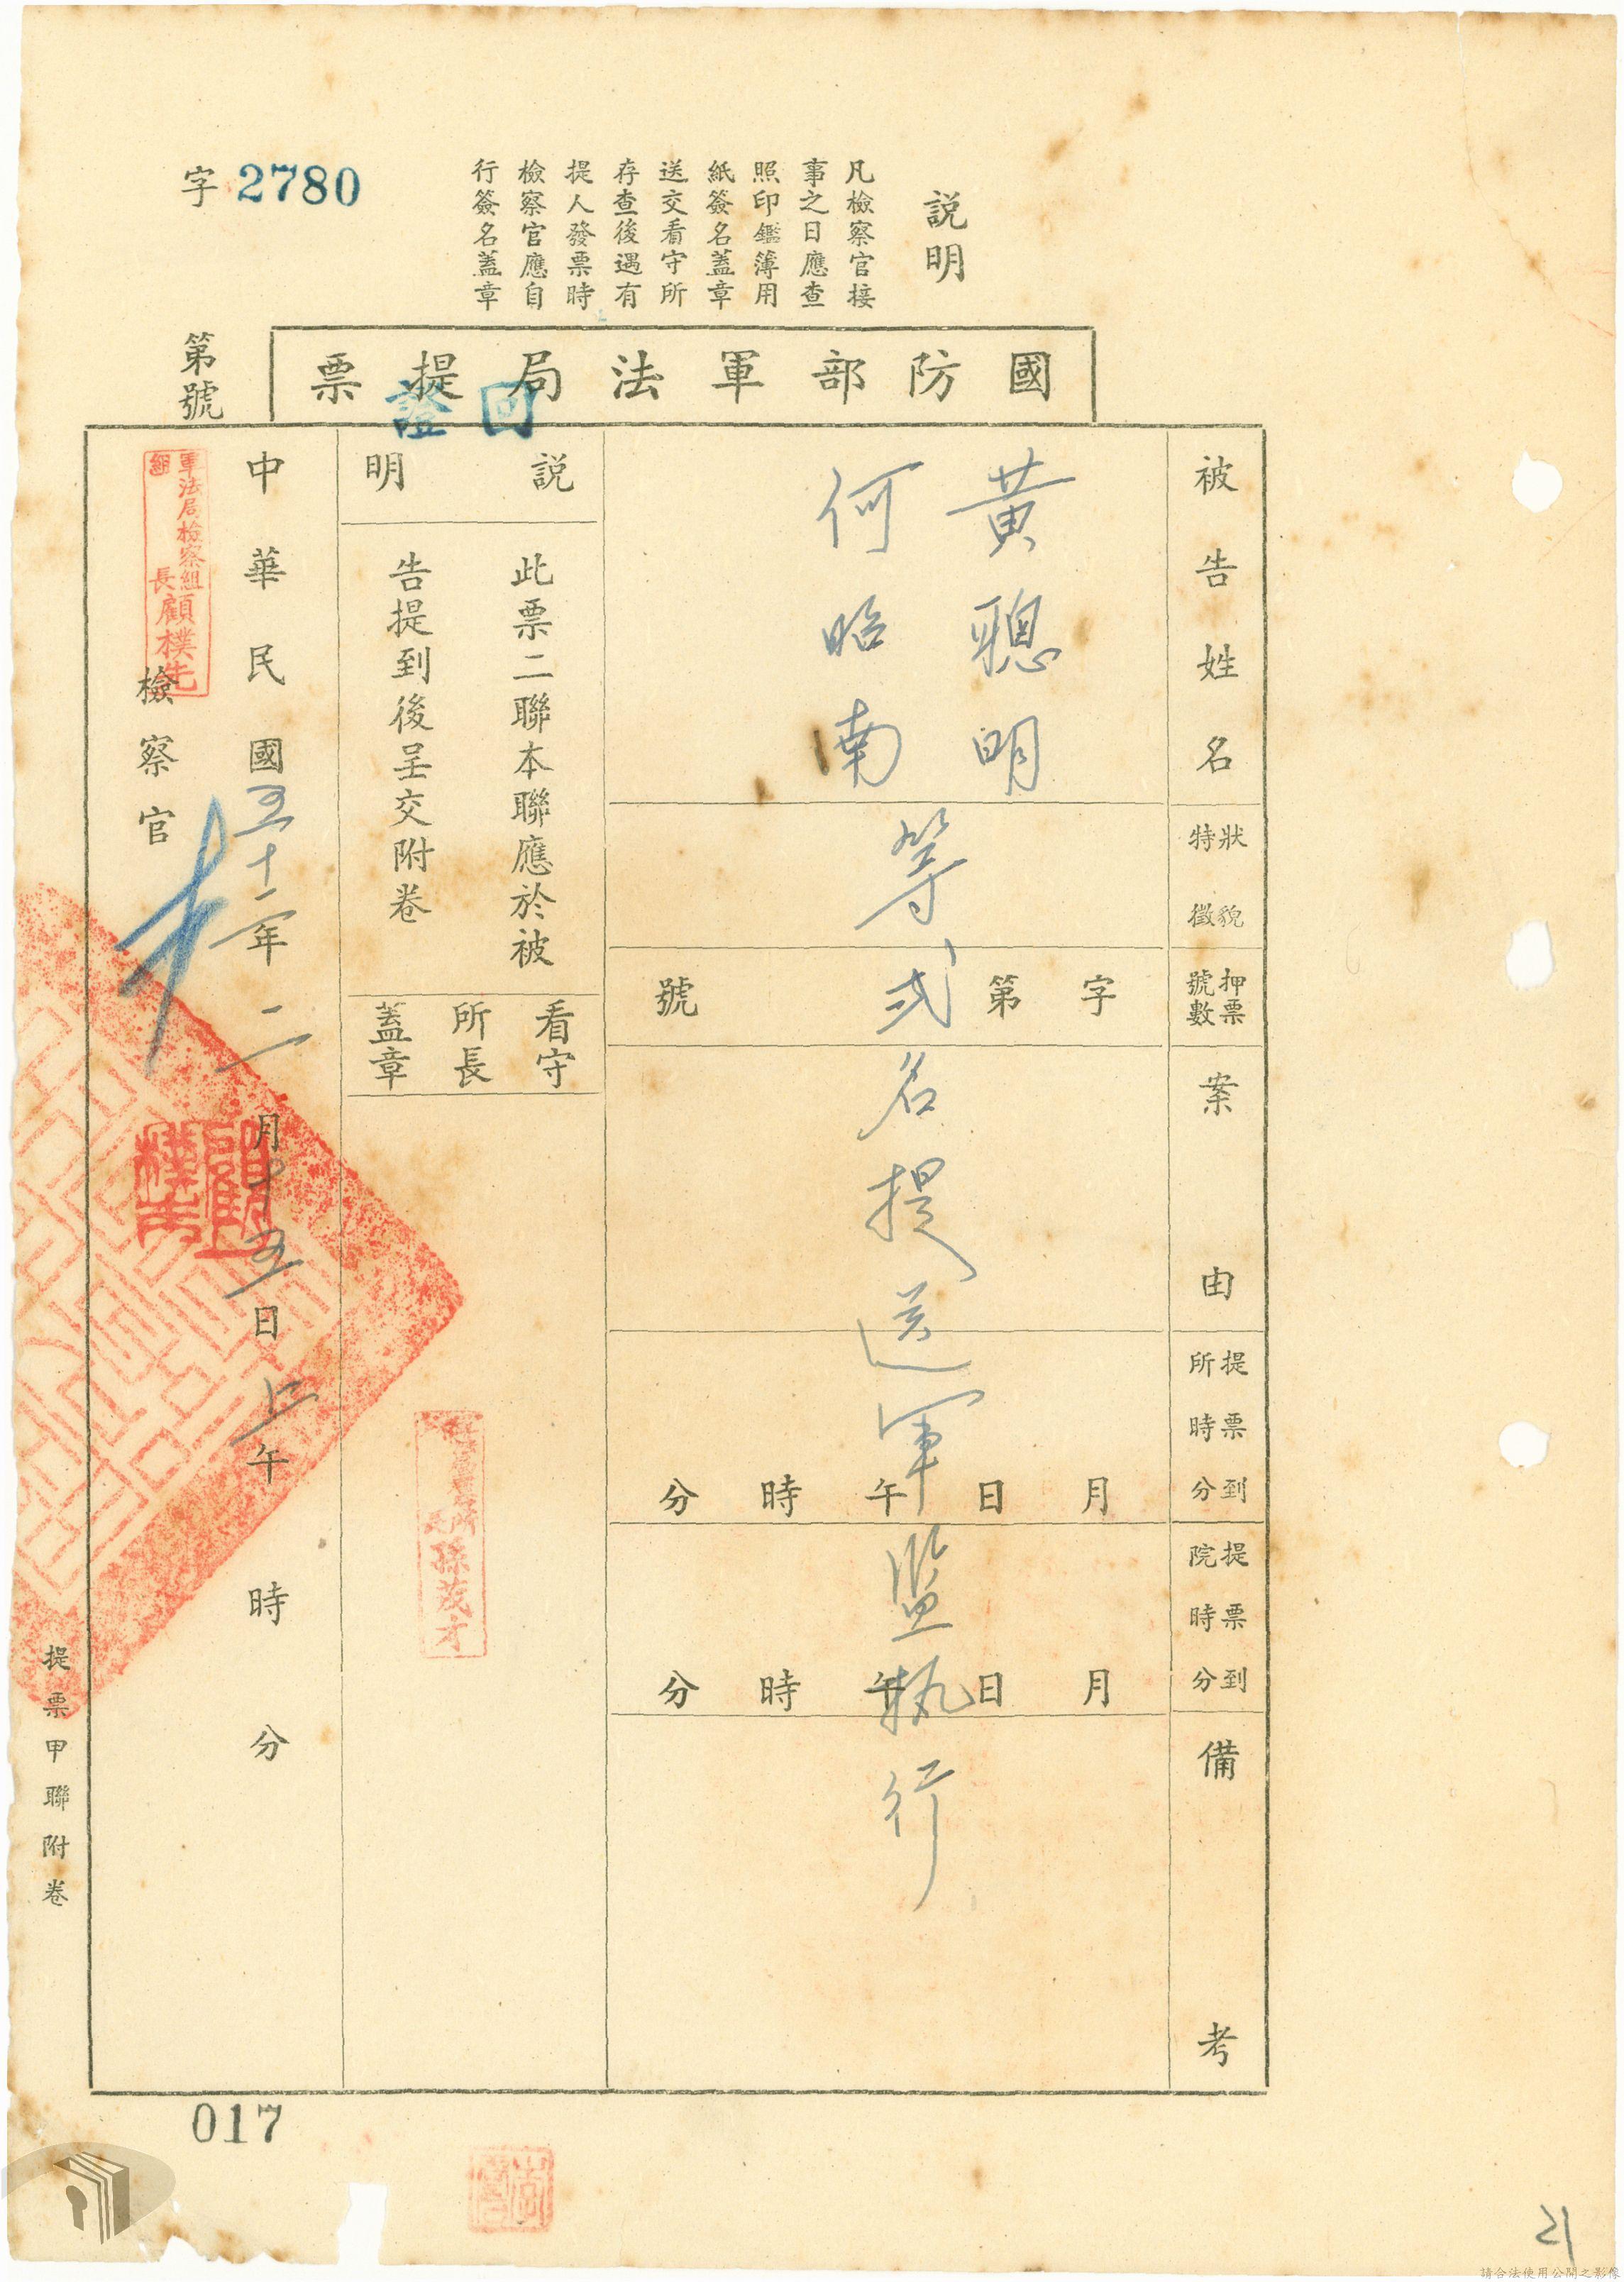 説明
凡檢察官接
事之日應查
照印鑑簿用
紙簽名蓋章
送交看守所
存查後遇有
提人發票時
檢察官應自
行簽名蓋章
字 2780
第號
國防部軍法局提票
回證
被告姓名
特徵狀貌
押票號數
案由
提票到所時分
提票到院時分
備考
黃聰明
何昭南
等弍名提送軍監執行
字第 號
月日午時分
月日午時分
説明
此票二聯本聯應於被
告提到後呈交附卷
看守所長蓋章
孫茂才
中華民國五十一年二月十五日上午 時 分
軍法局檢察組
組長顧樸先
檢察官
顧樸先
提票甲聯附卷
017
21
請合法使用公開之影像